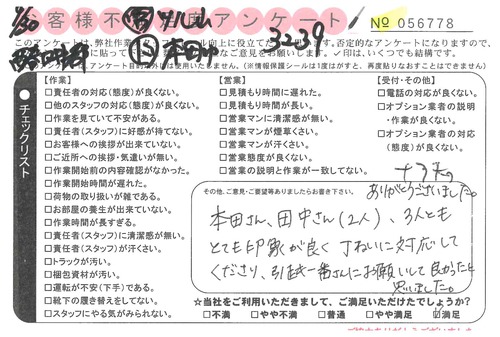 お客様不満度アンケート
№ 056778
11/30
本田
3239
このアンケートは、弊社作業
チェックリスト
【作業】
□責任者の対応(態度)が良くない。
□他のスタッフの対応(態度)が良くない。
□作業を見ていて不安がある。
□責任者(スタッフ)に好感が持てない。
□お客様への挨拶が出来ていない。
□ご近所への挨拶・気遣いが無い。
□作業開始前の内容確認がなかった。
□作業開始時間が遅れた。
□荷物の取り扱いが雑である。
□お部屋の養生が出来ていない。
□作業時間が長すぎる。
□責任者(スタッフ)に清潔感が無い。
□責任者(スタッフ)が汗くさい。
□トラックが汚い。
□梱包資材が汚い。
□運転が不安(下手)である。
□靴下の履き替えをしてない。
□スタッフにやる気がみられない。
【営業】
□見積もり時間に遅れた。
□見積もり時間が長い。
□営業マンに清潔感が無い。
□営業マンが煙草くさい。
□営業マンが汗くさい。
□営業態度が良くない。
□営業の説明と作業が一致してない。
【受付・その他】
□電話の対応が良くない。
□オプション業者の説明
・作業が良くない。
□オプション業者の対応
(態度)が良くない。
その他、ご意見・ご要望等ありましたらお書き下さい。
ありがとうございました。
本田さん、田中さん(2人)、3人とも
とても印象が良く丁ねいに対応して
くださり、引越一番さんにお願いして良かったと
思いました。
☆当社をご利用いただきまして、ご満足いただけたでしょうか?
□不満 □やや不満 □普通 □やや満足 ☑満足